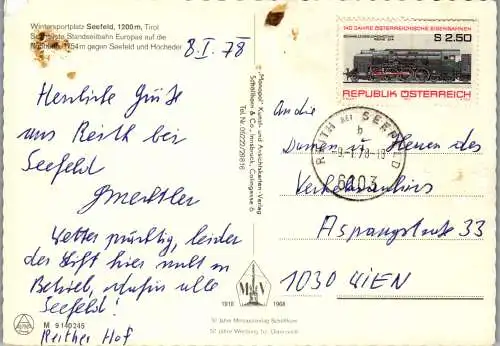 Wintersportplatz Seefeld, 1200 m, Tirol
Standseilbahn Europas auf die
gegen Seefeld und Hocheder
8.I.78
140 JAHRE ÖSTERREICHISCHE EISENBAHNEN
S 2.50
REPUBLIK ÖSTERREICH
REITH BEI SEEFELD
b
6103
Herzliche Grüße
aus Reith bei
Seefeld
Wetter prächtig, leider
der Lift hier nicht in
Betrieb, dafür alle
Seefeld!
Reither Hof
"Monopol" Kunst- und Ansichtskarten-Verlag
Schöllhorn & Co., Innsbruck,
Tel. Nr. 05222/28816
An die
Damen u. Herren des
Verkehrsbüros
Aspangstraße 33
1030 WIEN
M V
1918 1968
50 Jahre Monopolverlag Schöllhorn
50 Jahre Werbung für Österreich
M 9140245